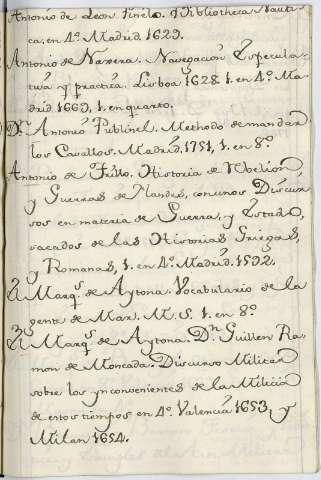 Antonio de Leon Pinelo. Bibliotheca Nauti-
ca, en 4º. Madrid. 1629.
Antonio de Naxera. Navegacion Especula-
tiva y practica. Lisboa 1628. 1. en 4º. Ma-
drid 1669, 1. en quarto.
Dn. Antonio Publinel. Methodo de mandar
los Cavallos. Madrid, 1751, 1. en 8º
Antonio de Trillo. Historia de Rbelion,
y Guerras de Flandes, con unos Discur-
sos en materia de Guerra, y Estado,
sacados de las Historias Griegas,
y Romanas, 1. en 4º. Madrid. 1592.
El Marqs. de Aytona. Vocabulario de la
gente de Mar. M. S. 1. en 8º
El Marqs. de Aytona. Dn. Guillen Ra-
mon de Moncada. Discurso Militar
sobre los ynconvenientes de la Milicia
de estos tiempos en 4º. Valencia 1653, y
Milan 1654.